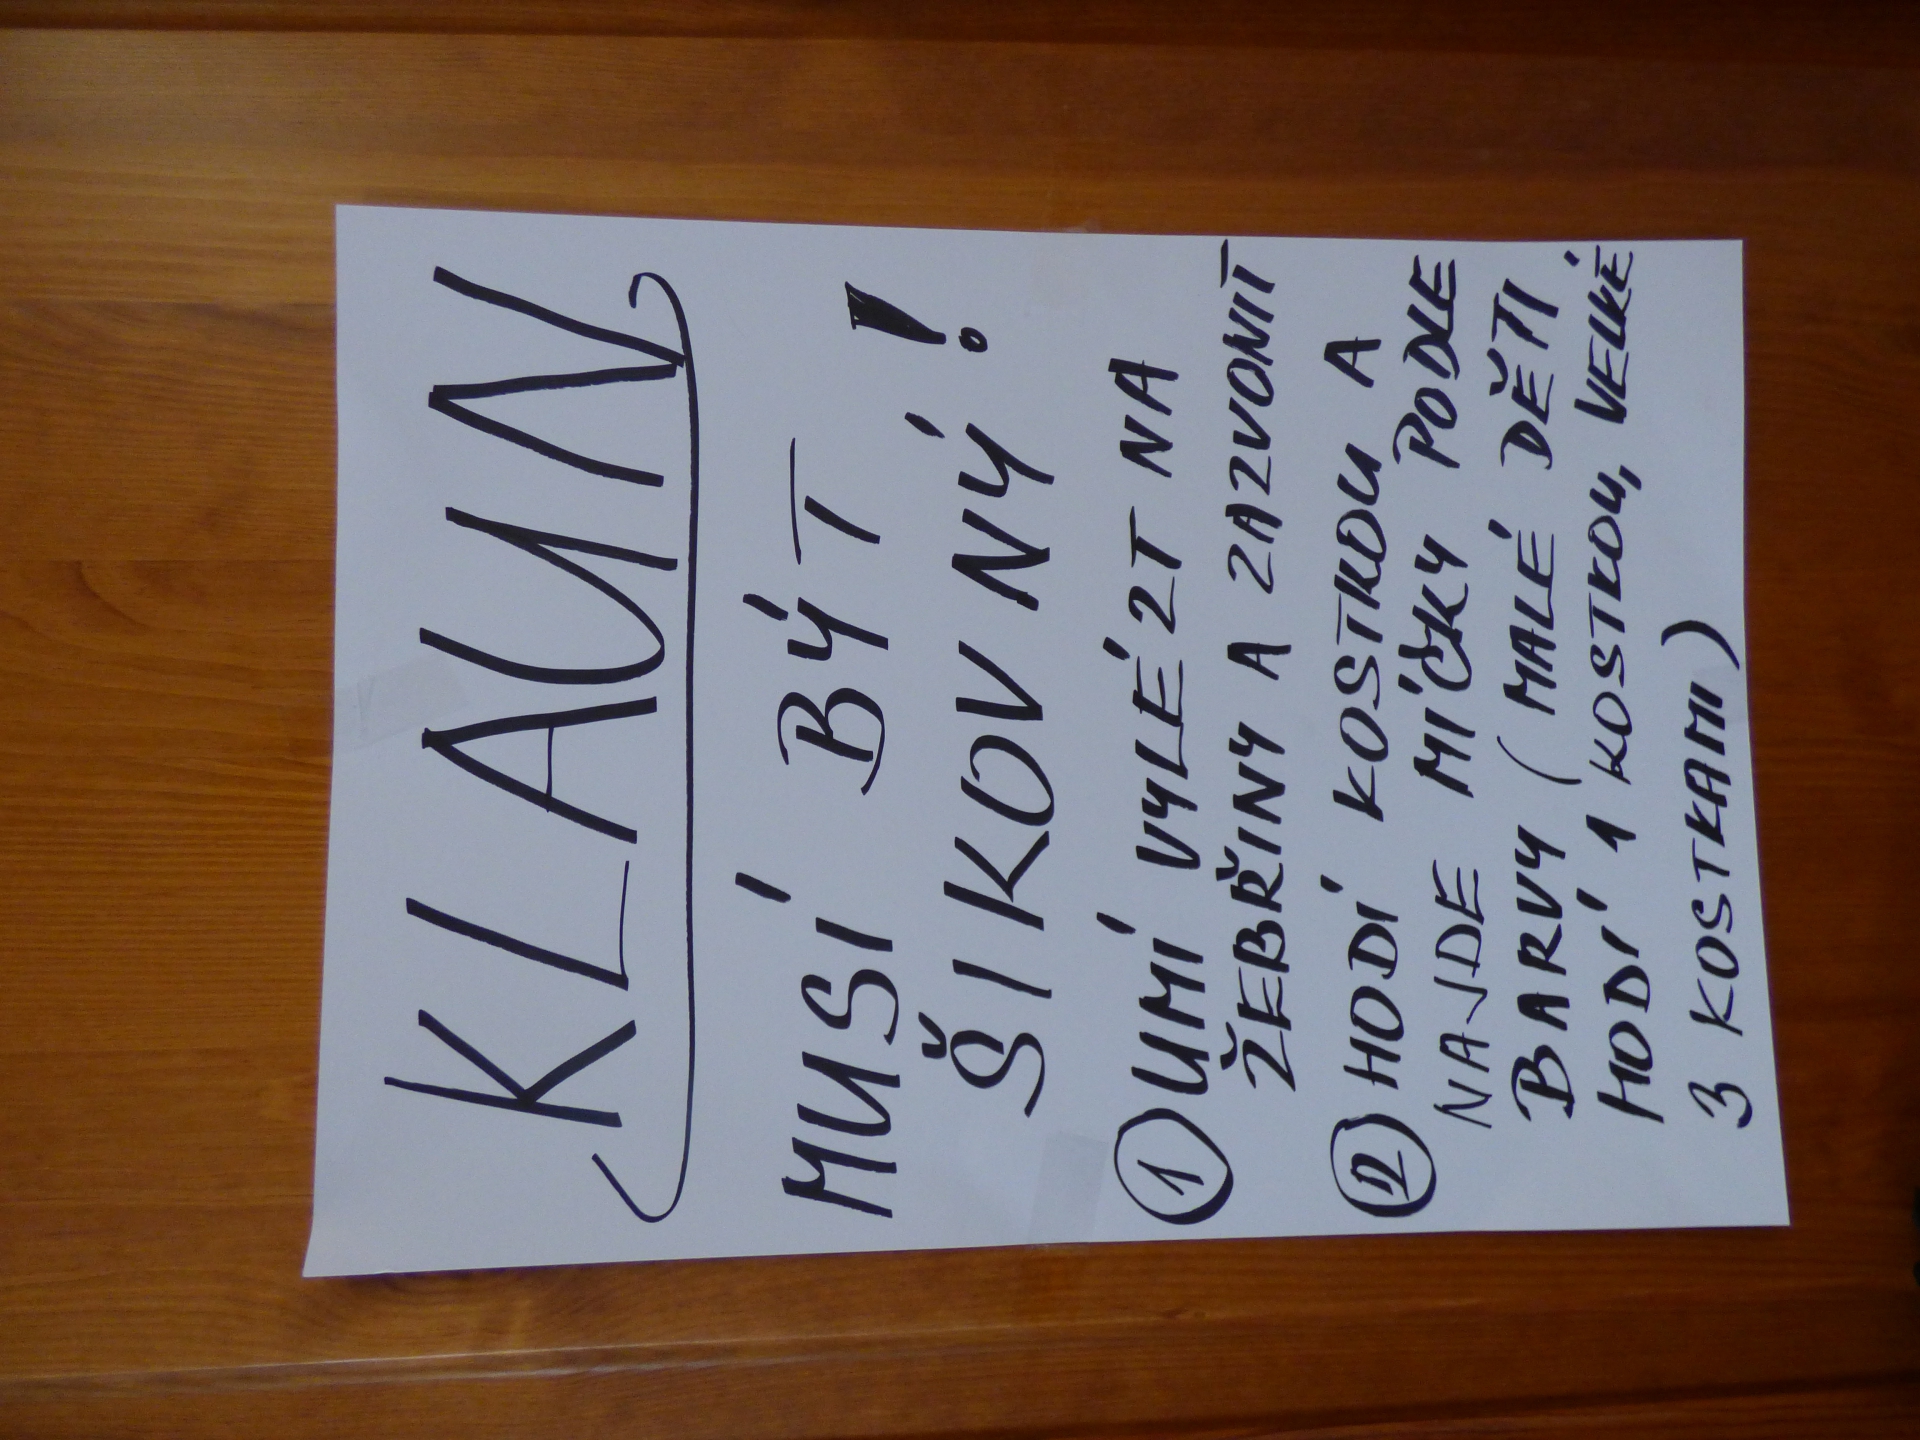 KLAUN
MUSÍ BÝT
ŠIKOVNÝ!
1 UMÍ VYLÉZT NA
ŽEBŘINY A ZAZVONIT
2 HODÍ KOSTKOU A
NAJDE MÍČKY PODLE
BARVY (MALÉ DĚTI
HODÍ 1 KOSTKOU, VELKÉ
3 KOSTKAMI)